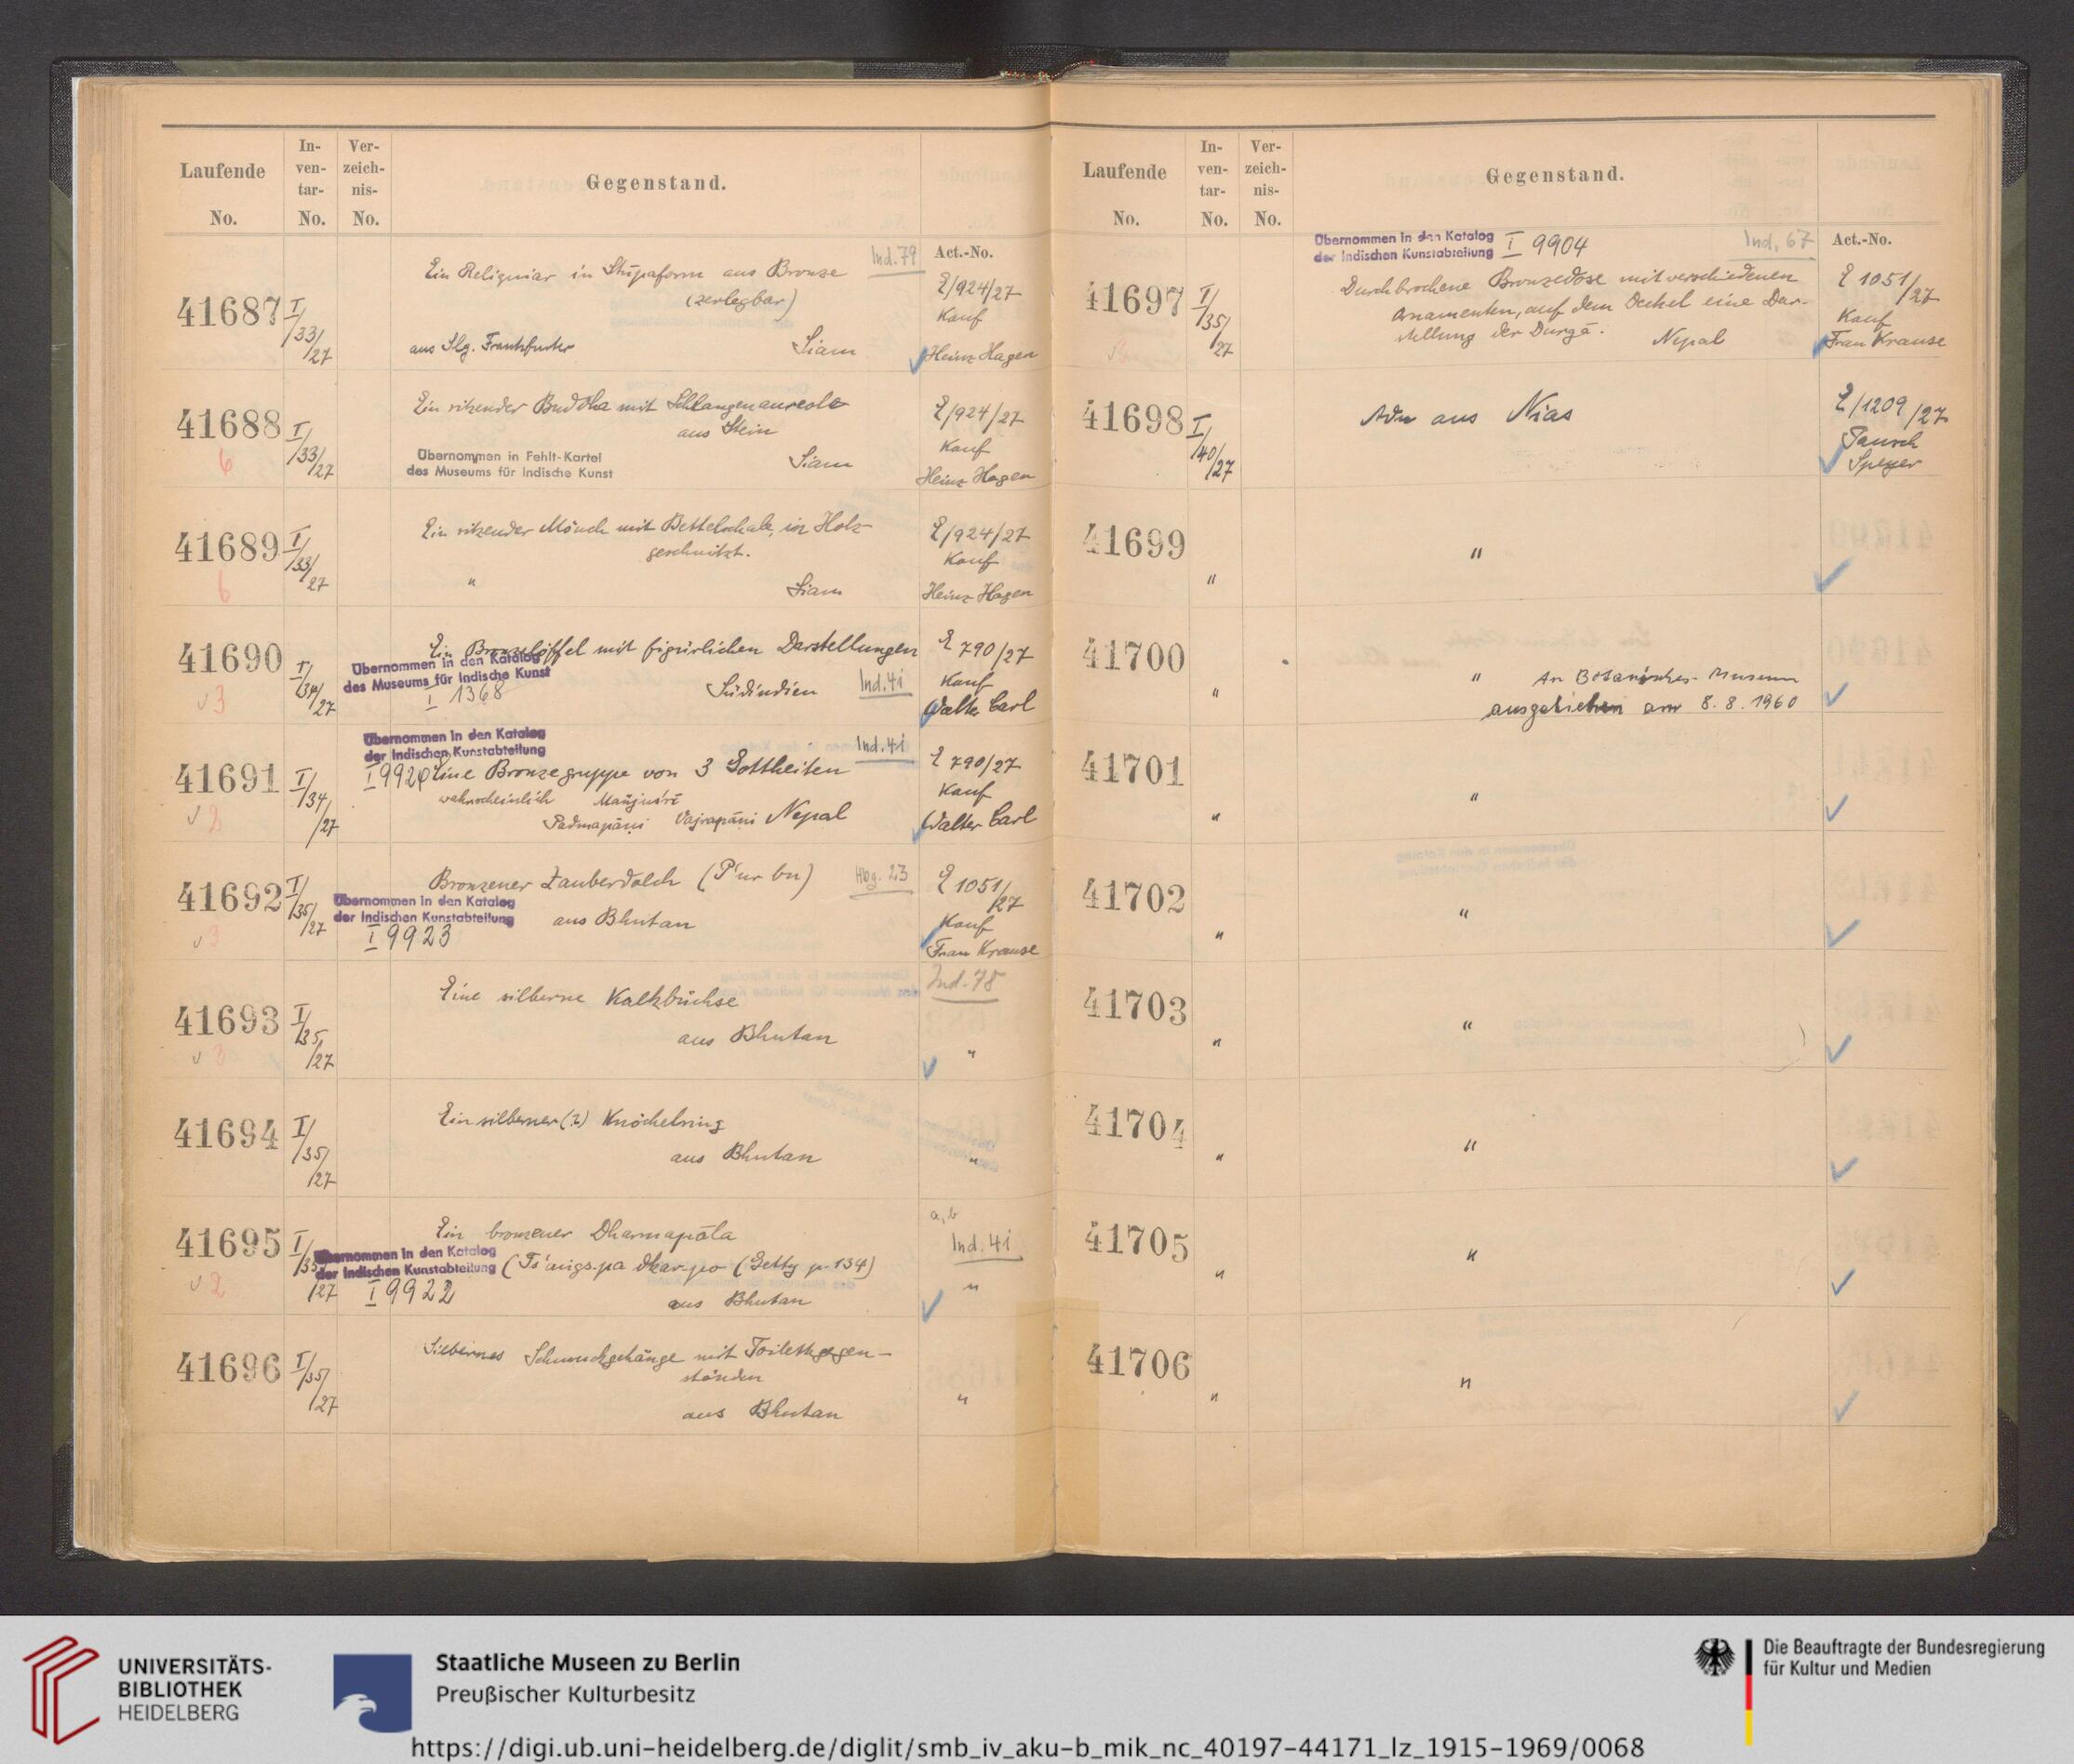 Laufende No.
In-ven-tar-No.
Ver-zeich-nis-No.
Gegenstand.
Act.-No.
41687
I/33/27
Ein Reliquiar in Stūpaform aus Bronze
Ind. 79
(zerlegbar)
aus Slg. Frankfurter
Siam
E/924/27
Kauf
Heinz Hagen
41688
6
I/33/27
Ein sitzender Buddha mit Schlangenaureole
aus Stein
Übernommen in Fehlt-Kartei
des Museums für Indische Kunst
Siam
E/924/27
Kauf
Heinz Hagen
41689
6
I/33/27
Ein sitzender Mönch mit Bettelschale, in Holz
geschnitzt.
"
Siam
E/924/27
Kauf
Heinz Hagen
41690
v 3
I/34/27
Ein Bronzelöffel mit figürlichen Darstellungen
Übernommen in den Katalog
des Museums für Indische Kunst
I 1368
Südindien
Ind. 41
E 790/27
Kauf
Walter Carl
41691
v 2
I/34/27
Übernommen in den Katalog
der Indischen Kunstabteilung
Ind. 41
I 9920 Eine Bronzegruppe von 3 Gottheiten
wahrscheinlich Mañjuśrī
Padmapāṇi Vajrapāni Nepal
E 790/27
Kauf
Walter Carl
41692
v 3
I/35/27
Bronzener Zauberdolch (P'ur bu)
Hbg. 23
Übernommen in den Katalog
der Indischen Kunstabteilung
aus Bhutan
I 9923
E 1051/27
Kauf
Frau Krause
41693
v 3
I/35/27
Eine silberne Kalkbüchse
aus Bhutan
Ind. 78
"
41694
I/35/27
Ein silberner (?) Knöchelring
aus Bhutan
"
41695
v 2
I/35/27
Ein bronzener Dharmapāla
Übernommen in den Katalog
der Indischen Kunstabteilung
(Getty p. 134)
I 9922
aus Bhutan
a, b
Ind. 41
"
41696
I/35/27
Silbernes Schmuckgehänge mit Toilettgegen-
ständen
aus Bhutan
"
Laufende No.
In-ven-tar-No.
Ver-zeich-nis-No.
Gegenstand.
Act.-No.
41697
I/35/27
Übernommen in den Katalog
der Indischen Kunstabteilung
I 9904
Ind. 67
Durchbrochene Bronzedose mit verschiedenen
Ornamenten, auf dem Deckel eine Dar-
stellung der Durgā.
Nepal
E 1051/27
Kauf
Frau Krause
41698
I/40/27
Adu aus Nias
E/1209/27
Tausch
Speyer
41699
" "
41700
" "
An Botanisches Museum
ausgeliehen am 8.8.1960
41701
" "
41702
" "
41703
" "
41704
" "
41705
" "
41706
" "
UNIVERSITÄTS-
BIBLIOTHEK
HEIDELBERG
Staatliche Museen zu Berlin
Preußischer Kulturbesitz
Die Beauftragte der Bundesregierung
für Kultur und Medien
https://digi.ub.uni-heidelberg.de/diglit/smb_iv_aku-b_mik_nc_40197-44171_lz_1915-1969/0068